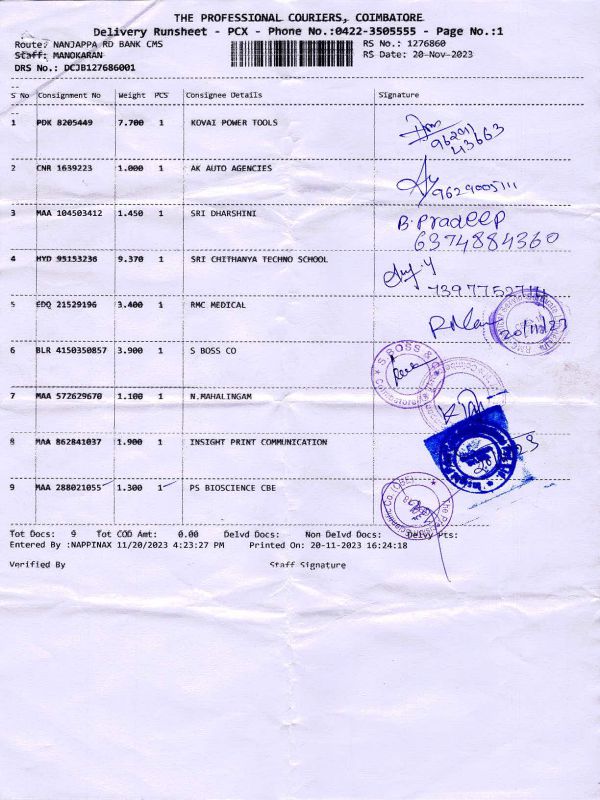 THE PROFESSIONAL COURIERS, COIMBATORE
Delivery Runsheet - PCX - Phone No.:0422-3505555 - Page No.:1
Route: NANJAPPA RD BANK CMS RS No.: 1276860
Staff: MANOKARAN RS Date: 20-Nov-2023
DRS No.: DCJB127686001
S No Consignment No Weight PCS Consignee Details Signature
1 PDK 8205449 7.700 1 KOVAI POWER TOOLS
96291
43663
2 CNR 1639223 1.000 1 AK AUTO AGENCIES
9629005111
3 MAA 104503412 1.450 1 SRI DHARSHINI B.Pradeep
6374884360
4 HYD 95153236 9.370 1 SRI CHITHANYA TECHNO SCHOOL
5 EDQ 21529196 3.400 1 RMC MEDICAL
20/11/23
6 BLR 4150350857 3.900 1 S BOSS CO S BOSS &
7 MAA 572629670 1.100 1 N.MAHALINGAM
8 MAA 862841037 1.900 1 INSIGHT PRINT COMMUNICATION
9 MAA 288021055 1.300 1 PS BIOSCIENCE CBE
Tot Docs: 9 Tot COD Amt: 0.00 Delvd Docs: Non Delvd Docs: Delvy Pts:
Entered By :NAPPINAX 11/20/2023 4:23:27 PM Printed On: 20-11-2023 16:24:18
Verified By Staff Signature